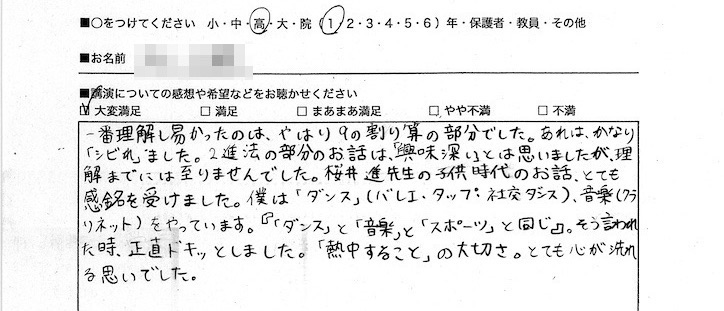 ■○をつけてください 小・中・高・大・院（1・2・3・4・5・6）年・保護者・教員・その他
■お名前
■講演についての感想や希望などをお聴かせください
☑ 大変満足 □ 満足 □ まあまあ満足 □ やや不満 □ 不満
一番理解し易かったのは、やはり9の割り算の部分でした。あれは、かなり
「シビれ」ました。2進法の部分のお話は、「興味深い」とは思いましたが、理
解までには至りませんでした。桜井進先生の子供時代のお話、とても
感銘を受けました。僕は「ダンス」(バレエ・タップ・社交ダンス)、音楽(クラ
リネット)をやっています。『「ダンス」と「音楽」と「スポーツ」と同じ』。そう言われ
た時、正直ドキッとしました。「熱中すること」の大切さ。とても心が洗われ
る思いでした。